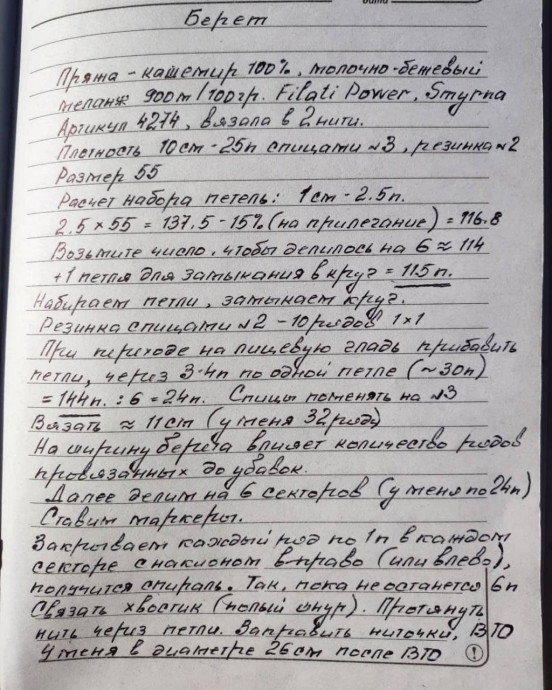 Берет
Пряжа - кашемир 100%, молочно-бежевый
меланж 900м/100гр. Filati Power, Smyrna
Артикул 4274, вязала в 2 нити.
Плотность 10см - 25п спицами №3, резинка №2
Размер 55
Расчет набора петель: 1см - 2.5п.
2.5 × 55 = 137.5 - 15% (на прилегание) = 116.8
Возьмите число, чтобы делилось на 6 ≈ 114
+1 петля для замыкания в круг = 115п.
Набираем петли, замыкаем круг.
Резинка спицами №2 - 10 рядов 1×1
При переходе на лицевую гладь прибавить
петли, через 3-4п по одной петле (~30п)
= 144п. : 6 = 24п. Спицы поменять на №3
Вязать ≈ 11см (у меня 32 ряда)
На ширину берета влияет количество рядов
провязанных до убавок.
Далее делим на 6 секторов (у меня по 24п)
Ставим маркеры.
Закрываем каждый ряд по 1п в каждом
секторе с наклоном вправо (или влево),
получится спираль. Так, пока не останется 6п
Связать хвостик (полый шнур). Протянуть
нить через петли. Заправить ниточки, ВТО
У меня в диаметре 26см после ВТО !